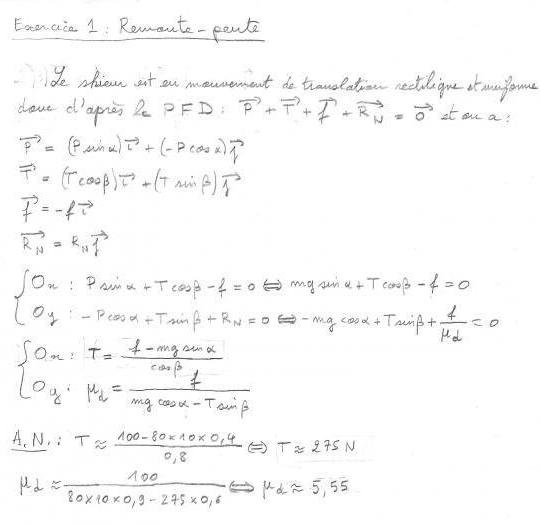 Exercice 1 : Remonte-pente
Le skieur est en mouvement de translation rectiligne et uniforme
donc d'après le PFD : P⃗ + T⃗ + f⃗ + R⃗_N = 0⃗ et on a :
P⃗ = (P sin α) i⃗ + (-P cos α) j⃗
T⃗ = (T cos β) i⃗ + (T sin β) j⃗
f⃗ = -f i⃗
R⃗_N = R_N j⃗
{ Ox : P sin α + T cos β - f = 0 ⇔ mg sin α + T cos β - f = 0
{ Oy : -P cos α + T sin β + R_N = 0 ⇔ -mg cos α + T sin β + f/μ_d = 0
{ Ox : T = (f - mg sin α)/(cos β)
{ Oy : μ_d = f/(mg cos α - T sin β)
A.N. : T ≈ (100 - 80 × 10 × 0,4)/(0,8) ⇔ T ≈ 275 N
μ_d ≈ 100/(80 × 10 × 0,9 - 275 × 0,6) ⇔ μ_d ≈ 5,55